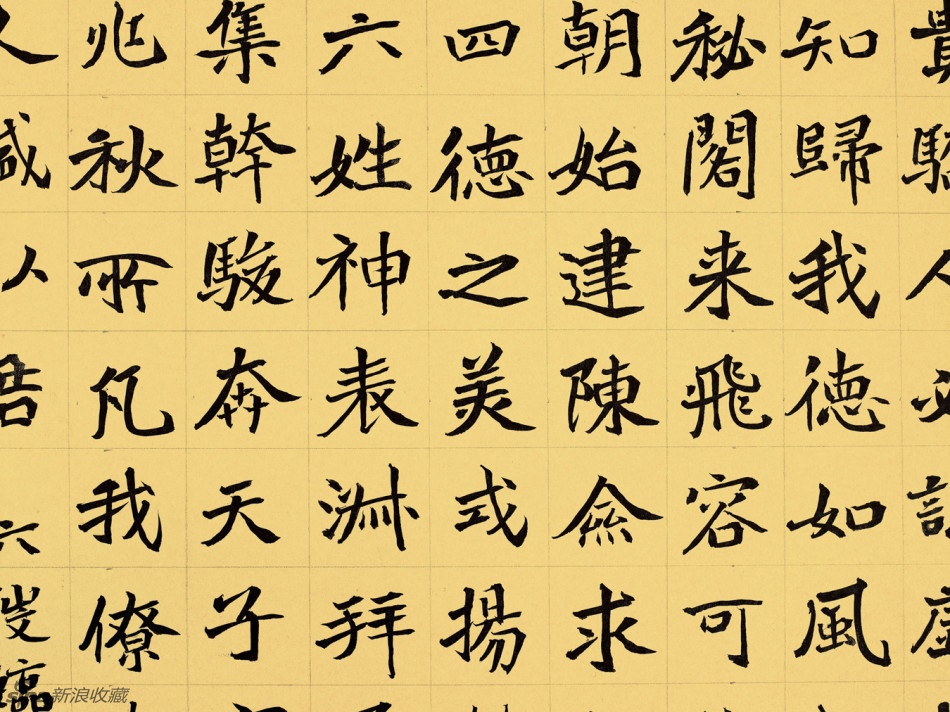 人
知歸我德如風
秘閣来飛容可
朝始建陳僉求
四德之美式揚
六姓神表拜
集幹駿奔天子
兆秋所凡我僚
人六
新浪收藏